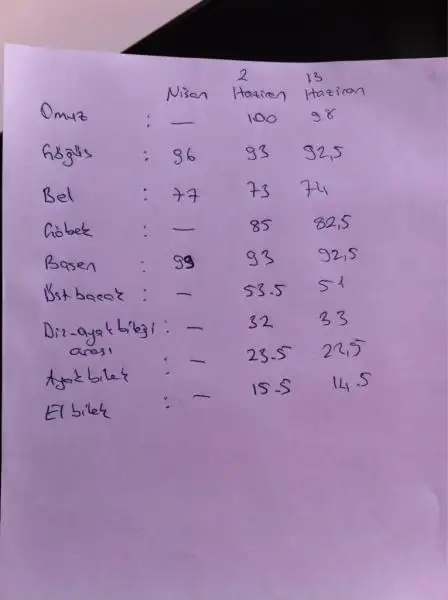 2 13
Nisan Haziran Haziran
Omuz : — 100 98
Göğüs : 96 93 92,5
Bel : 77 73 74
Göbek : — 85 82,5
Basen : 99 93 92,5
Üst bacak : — 53.5 51
Diz-ayak bileği : — 32 33
arası
Ayak bilek : — 23.5 22,5
El bilek : — 15.5 14.5